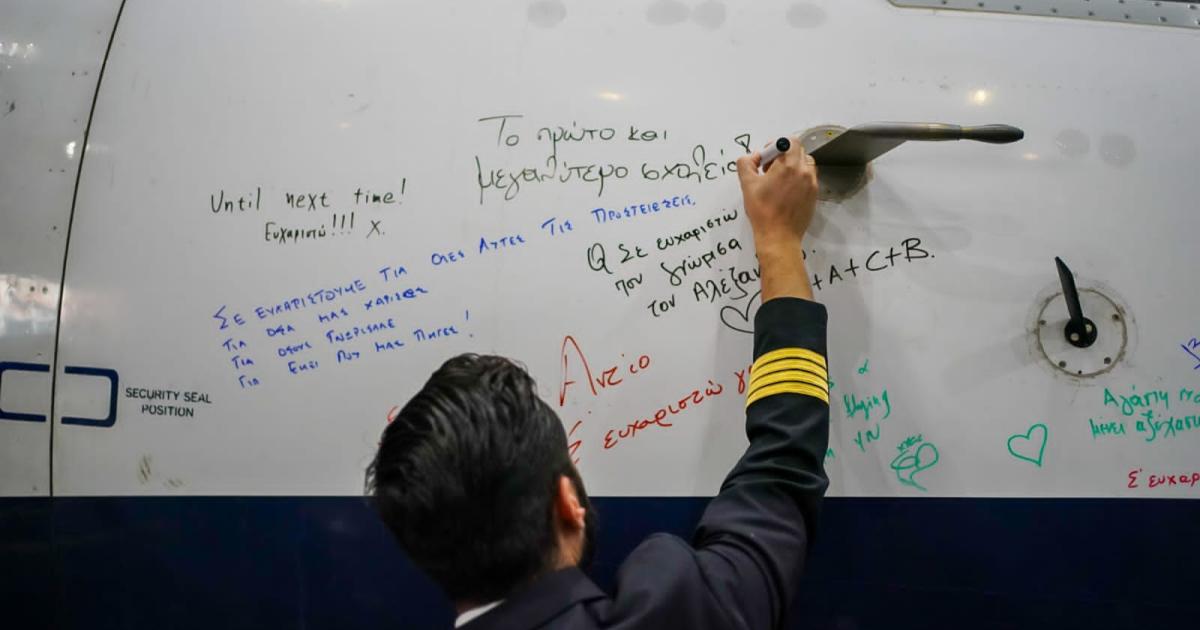 Το πρώτο και
μεγαλύτερο σχολείο
Until next time!
Ευχαριστώ!!! x.
ΣΕ ΕΥΧΑΡΙΣΤΟΥΜΕ ΓΙΑ ΟΛΕΣ ΑΥΤΕΣ ΤΙΣ ΠΡΟΣΓΕΙΩΣΕΙΣ.
ΓΙΑ ΟΣΑ ΜΑΣ ΧΑΡΙΣΕΣ
ΓΙΑ ΟΣΟΥΣ ΓΝΩΡΙΣΑΜΕ
ΓΙΑ ΕΚΕΙ ΠΟΥ ΜΑΣ ΠΗΓΕΣ!
Σε ευχαριστώ
που γνώρισα
τον
+A+C+B.
Αντίο
Σ ευχαριστώ
SECURITY SEAL
POSITION
Αγάπη
μένει
Σ' ευχαρ